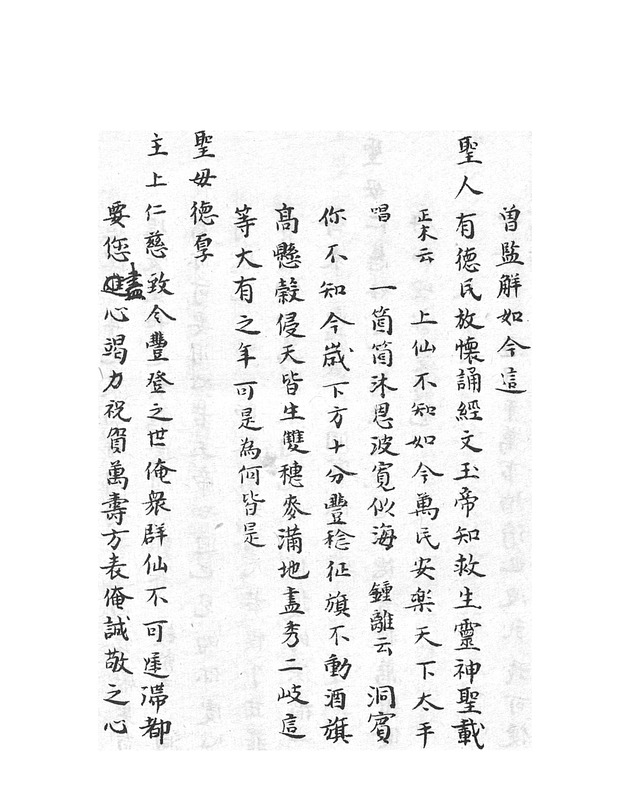 曽監解如今這
聖人有德民放懷誦經文玉帝知救生靈神聖載
正末云 上仙不知如今萬民安樂天下太平
唱 一箇箇沐恩波寛似海 鍾離云 洞賓
你不知今歲下方十分豐稔征旗不動酒旗
高懸榖侵天皆生雙穗麥滿地盡秀二岐這
等大有之年可是為何皆是
聖母德厚
主上仁慈致令豐登之世俺衆群仙不可遲滯都
要您盡心竭力祝賀萬壽方表俺誠敬之心